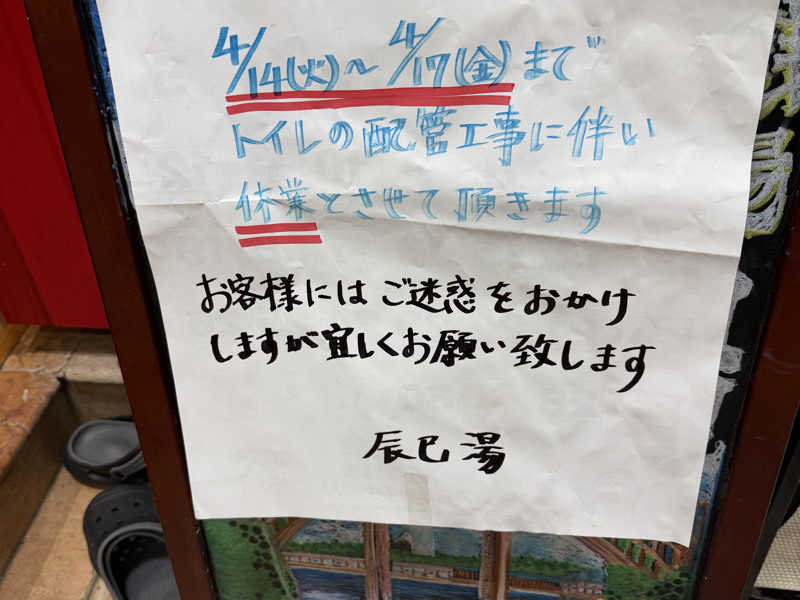 4/14(火)～4/17(金)まで
トイレの配管工事に伴い
休業とさせて頂きます
お客様にはご迷惑をおかけ
しますが宜しくお願い致します
辰巳湯
湯